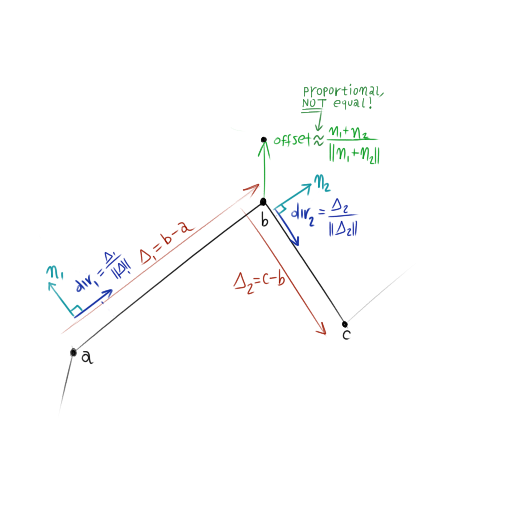 proportional,
NOT equal!
offset ≈ n₁+n₂
‖n₁+n₂‖
n₂
b
dir₂ = Δ₂
‖Δ₂‖
Δ₁=b-a
n₁
dir₁ = Δ₁
‖Δ₁‖
Δ₂=c-b
c
a